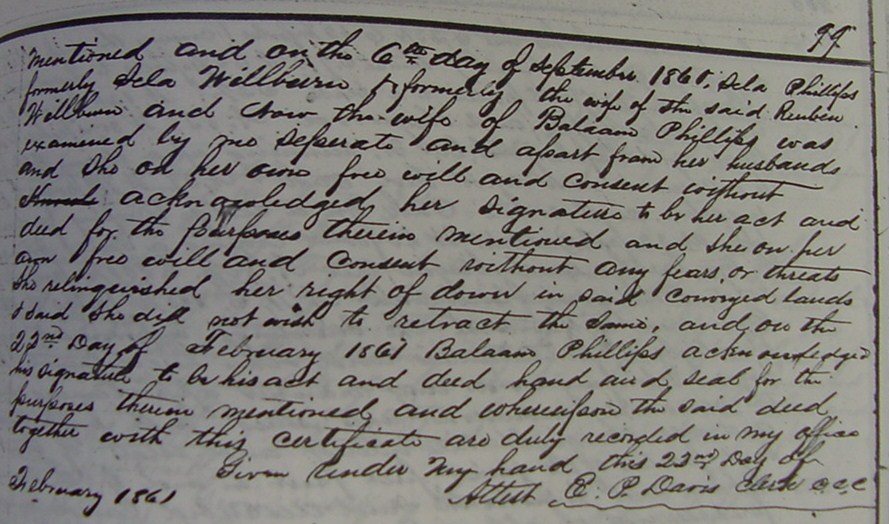 99
mentioned and on the 6th day of September 1860, Sela Phillips
formerly Sela Wellburn & formerly the wife of the said Reuben
Wellburn and now the wife of Balaam Phillips was
examined by me seperate and apart from her husbands
and she on her own free will and consent without
acknowledged her signature to be her act and
deed for the purposes therein mentioned and she on her
own free will and consent without any fears or threats
she relinquished her right of down in said conveyed lands
& said she did not wish to retract the same, and on the
22nd Day of February 1861 Balaam Phillips acknowledged
his signature to be his act and deed hand and seal for the
purposes therein mentioned and whereupon the said deed
together with this certificate are duly recorded in my office
Given under my hand this 22nd Day of
February 1861 Attest E. P. Davis Clerk C.C.C